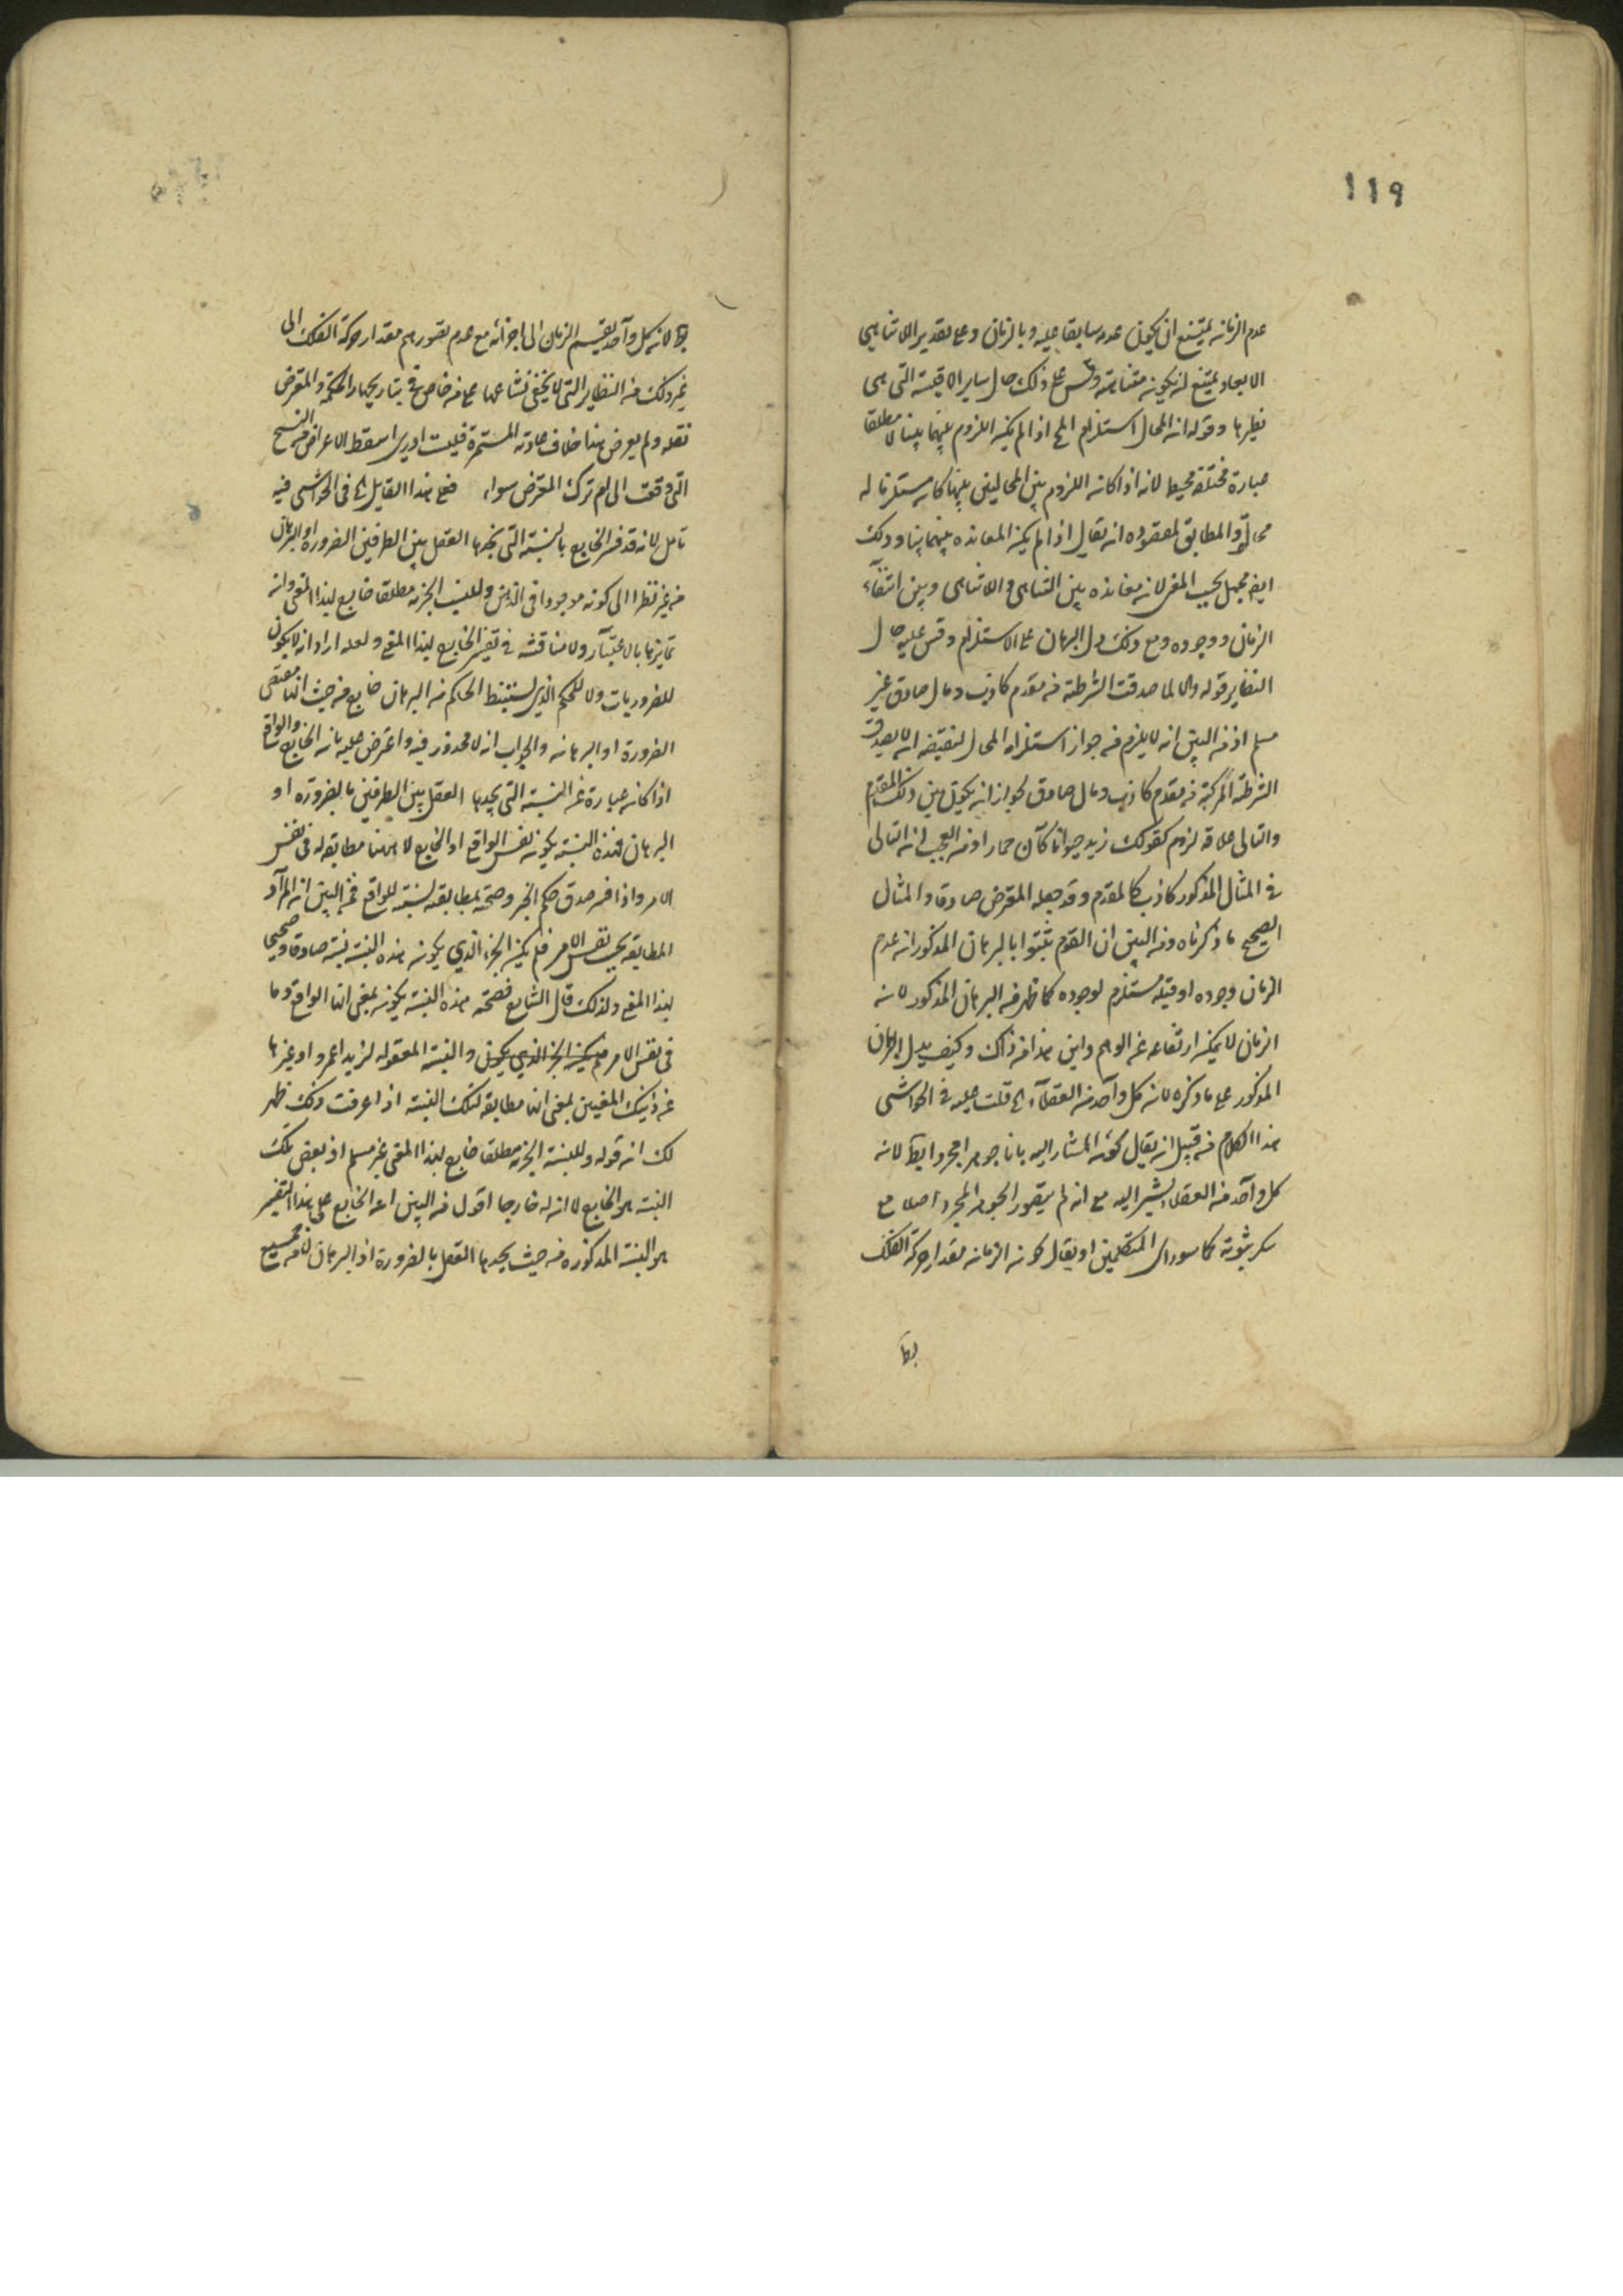 ١١٩
عدم الزمان يمتنع ان يكون عدمه سابقا عليه وبالزمان وعلى تقدير اللاتناهى
الابعاد يمتنع ان يكون متناهية وقس على ذلك حال ساير الاقيسة التى هى
نظيرها وقوله ان المحال استلزام المح اذا لم يكن اللزوم بينهما بينا لا مطلقا
عبارة مختلة لانه اذا كان اللزوم بين المحالين بينا كان مستلزما له
والمطابق لمقصوده ان يقال اذا لم يكن المعانده بينهما بينا وذلك
ايض بحسب المعنى لانه معانده بين التناهى واللاتناهى وبين انتفاء
الزمان ووجوده ومع ذلك دل البرهان على الاستلزام وقس عليه حال
النظاير قوله والا لما صدقت الشرطية من مقدم كاذب وتال صادق غير
مسلم اذ من البين انه لا يلزم من جواز استلزام المحال لنقيضه ان لا يصدق
الشرطية المركبة من مقدم كاذب وتال صادق لجواز ان يكون بين ذلك المقدم
والتالى علاقة لزوم كقولك زيد حيوانا كان حمارا ومن العجب ان التالى
فى المثال المذكور كاذب كالمقدم وقد جعله المعترض صادقا والمثال
الصحيح ما ذكرناه ومن البين ان القوم يثبتوا بالبرهان المذكور ان عدم
الزمان وجوده او قبله مستلزم لوجوده كما ظهر من البرهان المذكور لا ان
الزمان لا يمكن ارتفاعه عن الوهم واين هذا من ذاك وكيف يدل البرهان
المذكور على ما ذكره لان كل واحد من العقلاء الخ قلت عليه فى الحواشى
هذا الكلام من قبيل ان يقال كون المشار اليه بانا جوهرا مجردا بط لان
كل واحد من العقلاء يشير اليه مع انه لم يتصور الجوهر المجرد اصلا مع
ثبوته كما المتكلمين او يقال كون الزمان مقدار حركة الفلك
بط
بط لان كل واحد يقسم الزمان الى اجزائه مع عدم تصورهم مقدار حركة الفلك الى
غير ذلك من النظاير التى لا يخفى على من خاض فى تيار بحار الحكمة والمعترض
نقله ولم يعرض هنا خلاف عادته المستمرة فليت ادرى اسقط الاعراض من النسخ
التى وقعت الى ام ترك المعترض سواء قوله هذا القايل الخ فى الحواشى فيه
تامل لانه قد فسر الخارج بالنسبة التى يجدها العقل بين الطرفين الضرورة او البرهان
من غير نظر الى كونه موجودا فى الذهن وللنسب الجزئية مطلقا خارج لهذا المعنى وانه
تمايزهما بالاعتبار ولا مناقشة فى تفسير الخارج لهذا المعنى ولعله اراد ان لا يكون
للضروريات ولا للحكم الذى يستنبط الحاكم من البرهان خارج من حيث انها مقتضى
الضرورة او البرهان والجواب انه لا محذور فيه واعترض عليه بان الخارج والواقع
اذا كان عبارة عن النسبة التى يجدها العقل بين الطرفين بالضرورة او
البرهان فهذه النسبة يكون نفس الواقع او الخارج لا مطابقة له فى نفس
الامر واذا فسر صدق حكم الخبر وصحته بمطابقة نسبته للواقع فمن البين ان المراد
المطابقة بحسب نفس الامر فلم يكن الجزء الذى يكون هذه النسبة نسبته صادقا وصحيحا
لهذا المعنى ولذلك قال الشارح فصحته هذه النسبة يكون بمعنى انها الواقع وما
فى نفس الامر فلم يكن الجزء الذى يكون والنسبة المعقولة لزيد او عمرو او غيرها
من ذينك المعنيين بمعنى انها مطابقة لتلك النسبة اذا عرفت ذلك ظهر
لك ان قوله وللنسبة الجزئية مطلقا خارج لهذا المعنى غير مسلم اذ بعض تلك
النسبة هو الخارج لا ان له خارجا اقول من البين ان الخارج على هذا التفسير
هو النسبة المذكوره من حيث يجدها العقل بالضرورة او البرهان لا من جميع